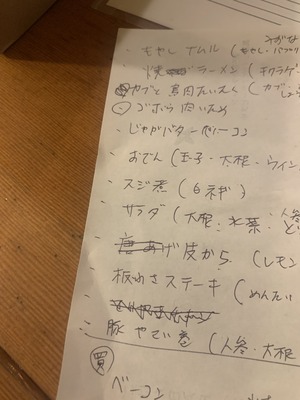 ・もやし ナムル (もやし・パプリ
・焼 ラーメン (キクラゲ
カブと鳥肉たいたく (カブ・
ゴボウ肉いため
・じゃがバターベーコン
・おでん (玉子・大根・ウイン
・スジ煮 (白ネギ)
・サラダ (大根・水菜・
げ皮から (レモン
・板わさステーキ (めんたい
・豚 やさい巻 (人参・大根
買
ベーコン